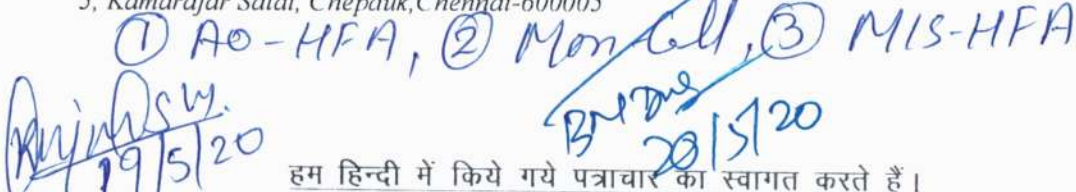 5, Kamarajar Salai, Chepauk,Chennai-600005
① AO-HFA, ② Mon Cell, ③ MIS-HFA
19/5/20
20/5/20
हम हिन्दी में किये गये पत्राचार का स्वागत करते हैं।